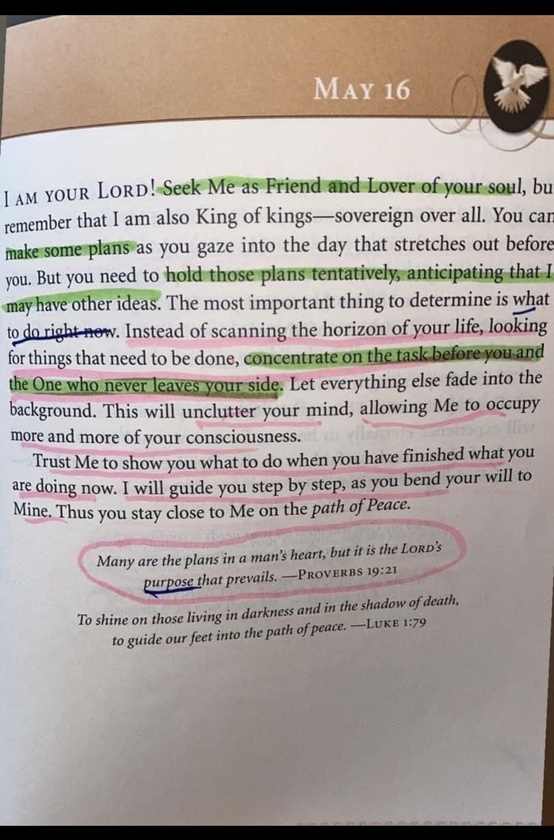 MAY 16
I AM YOUR LORD! Seek Me as Friend and Lover of your soul, bu
remember that I am also King of kings—sovereign over all. You can
make some plans as you gaze into the day that stretches out before
you. But you need to hold those plans tentatively, anticipating that I
may have other ideas. The most important thing to determine is what
to do right now. Instead of scanning the horizon of your life, looking
for things that need to be done, concentrate on the task before you and
the One who never leaves your side. Let everything else fade into the
background. This will unclutter your mind, allowing Me to occupy
more and more of your consciousness.
Trust Me to show you what to do when you have finished what you
are doing now. I will guide you step by step, as you bend your will to
Mine. Thus you stay close to Me on the path of Peace.
Many are the plans in a man's heart, but it is the LORD's
purpose that prevails. —PROVERBS 19:21
To shine on those living in darkness and in the shadow of death,
to guide our feet into the path of peace. —LUKE 1:79